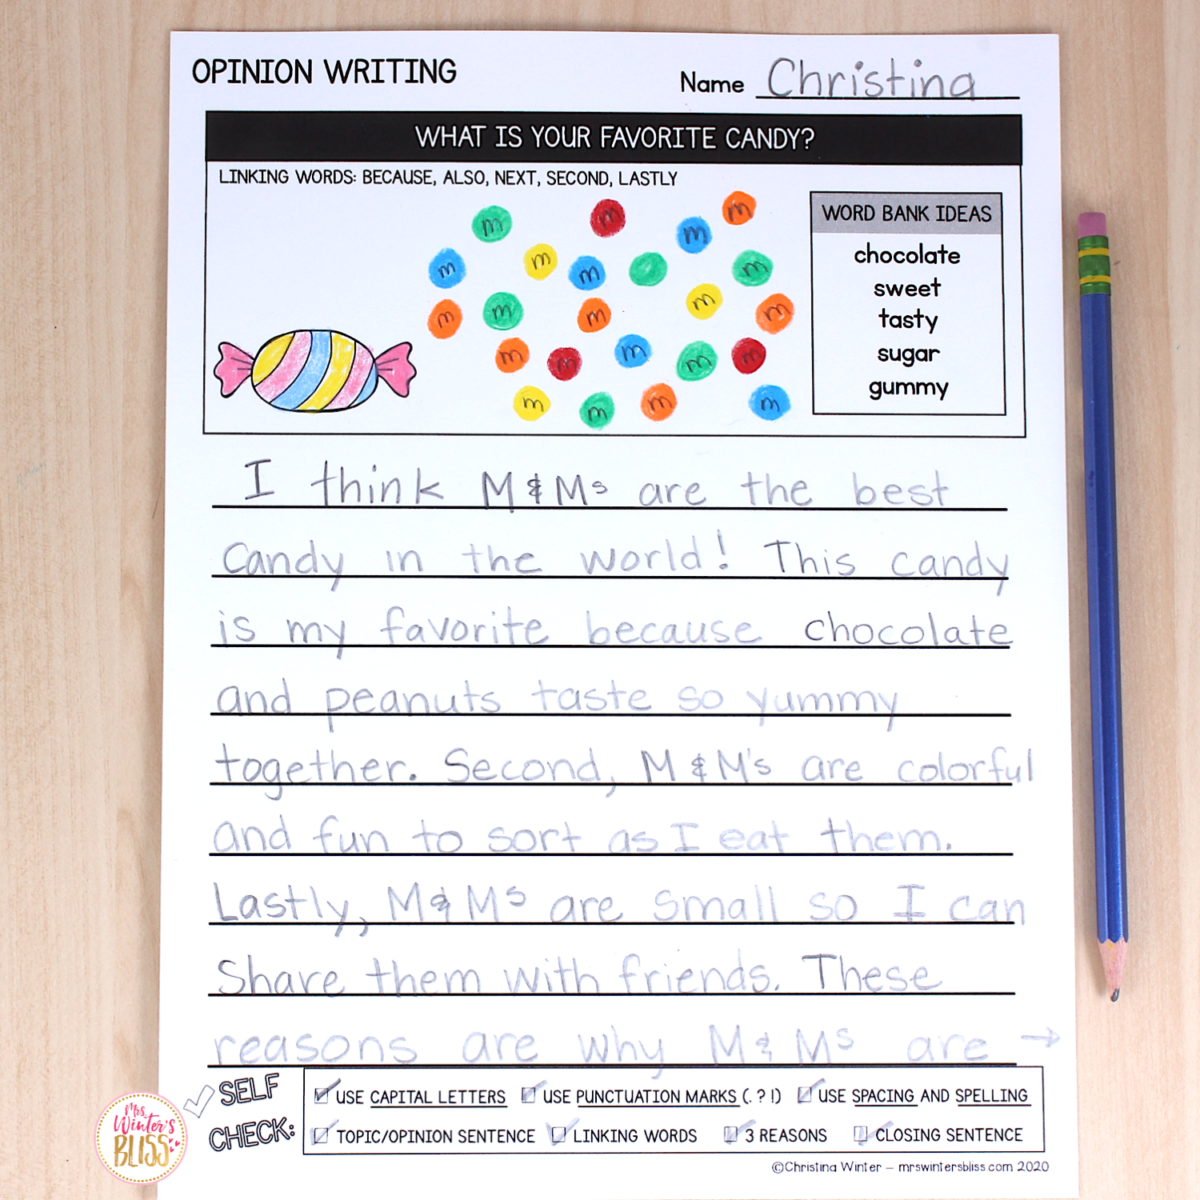 OPINION WRITING
Name Christina
WHAT IS YOUR FAVORITE CANDY?
LINKING WORDS: BECAUSE, ALSO, NEXT, SECOND, LASTLY
WORD BANK IDEAS
chocolate
sweet
tasty
sugar
gummy
m m m m
m m m m
m m m m m
m m m m m
m m m m
I think M&Ms are the best
Candy in the world! This candy
is my favorite because chocolate
and peanuts taste so yummy
together. Second, M&M's are colorful
and fun to sort as I eat them.
Lastly, M&Ms are small so I can
Share them with friends. These
reasons are why M&Ms are →
SELF CHECK:
USE CAPITAL LETTERS USE PUNCTUATION MARKS (. ? !) USE SPACING AND SPELLING
TOPIC/OPINION SENTENCE LINKING WORDS 3 REASONS CLOSING SENTENCE
Mrs. Winter's BLISS
©Christina Winter – mrswintersbliss.com 2020